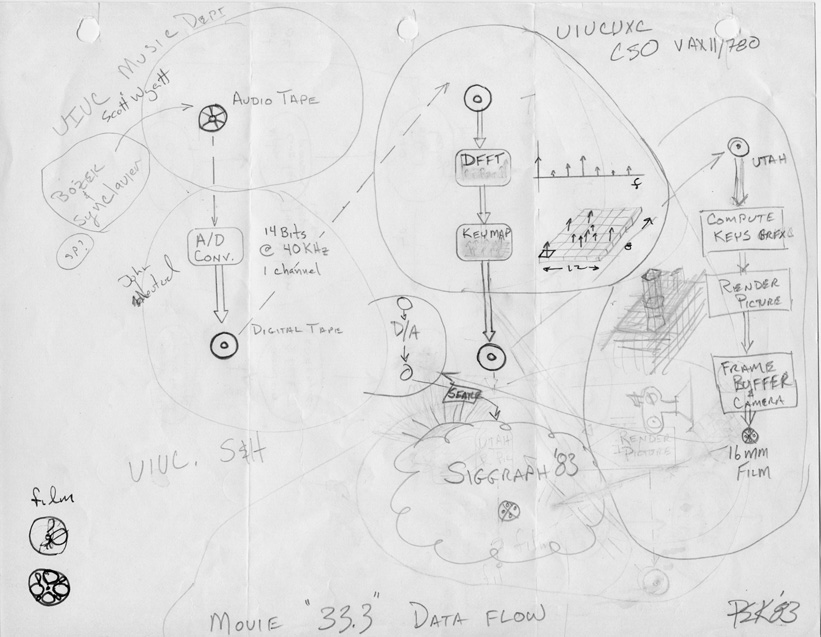 UIUC MUSIC DEPT
Scott Wyatt
AUDIO TAPE
BOŽEK
&
SYNCLAVIER
SP?
A/D
CONV.
14 BITS
@ 40KHz
1 channel
John
DIGITAL TAPE
UIUC. S&H
UIUCUXC
CSO VAX11/780
DFFT
KEYMAP
f
12
D/A
SEARE
UTAH
SIGGRAPH '83
UTAH
COMPUTE
KEYS GRFXS
RENDER
PICTURE
FRAME
BUFFER
&
CAMERA
16mm
FILM
RENDER
PICTURE
film
MOVIE "33.3" DATA FLOW
PSK'83